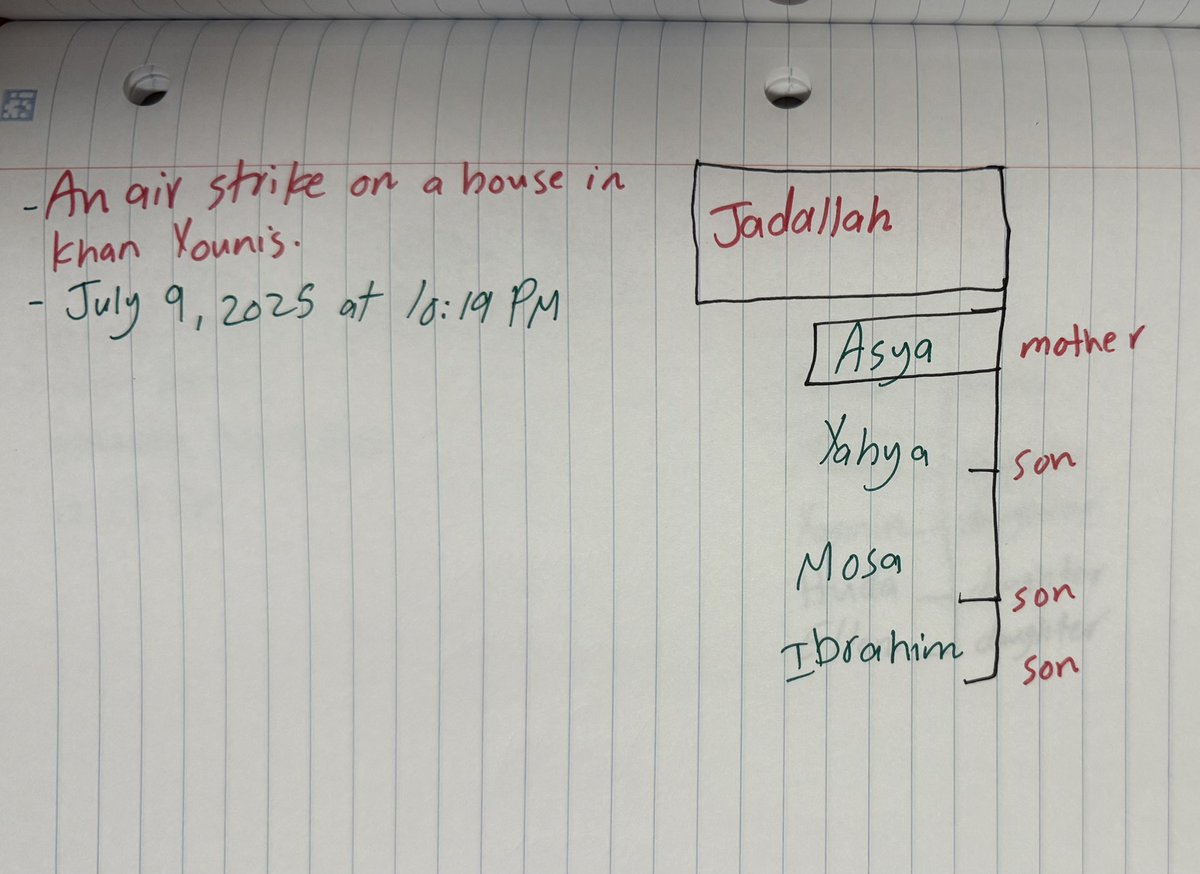 - An air strike on a house in
Khan Younis.
- July 9, 2025 at 10:19 PM
Jadallah
Asya mother
Yahya son
Mosa son
Ibrahim son